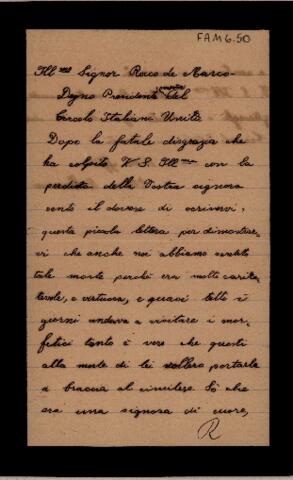 FAM 6.50
Ill.mo Signor Roco de Marco-
Degno Presidente del
Cercolo Italiani Uniti
Dopo la fatale disgrazia che
ha colpito V. S. Ill.ma con la
perdita della Vostra signora
sento il dovere di scrivervi,
questa piccola lettera per dimostrar-
vi che anche noi abbiamo sentito
tale morte perchè era molto carita-
tevole, e virtuosa, e quasi tutti i
giorni andava a visitare i mor-
fetici tanto è vero che questi
alla morte di lei vollero portarla
a braccia al cimitero. Sò che
era una signora di cuore,
R